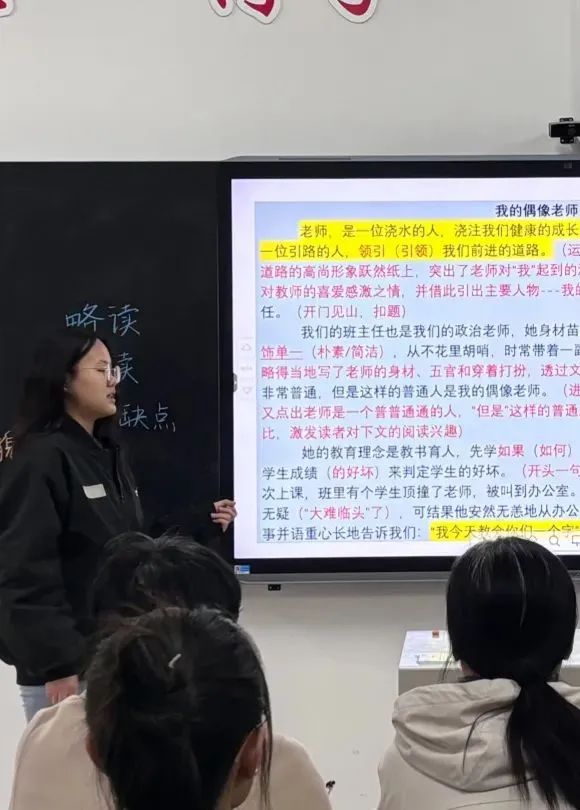 略读
读
缺点
我的偶像老师
老师，是一位浇水的人，浇注我们健康的成长
一位引路的人，领引（引领）我们前进的道路。（运
道路的高尚形象跃然纸上，突出了老师对“我”起到的
对教师的喜爱感激之情，并借此引出主要人物---我的
任。（开门见山，扣题）
我们的班主任也是我们的政治老师，她身材苗
饰单一（朴素/简洁），从不花里胡哨，时常带着一副
略得当地写了老师的身材、五官和穿着打扮，透过文
非常普通，但是这样的普通人是我的偶像老师。（进
又点出老师是一个普普通通的人，“但是”这样的普通
比，激发读者对下文的阅读兴趣）
她的教育理念是教书育人，先学如果（如何）
学生成绩（的好坏）来判定学生的好坏。（开头一句
次上课，班里有个学生顶撞了老师，被叫到办公室。
无疑（“大难临头”了），可结果他安然无恙地从办公
事并语重心长地告诉我们：“我今天教会你们一个字